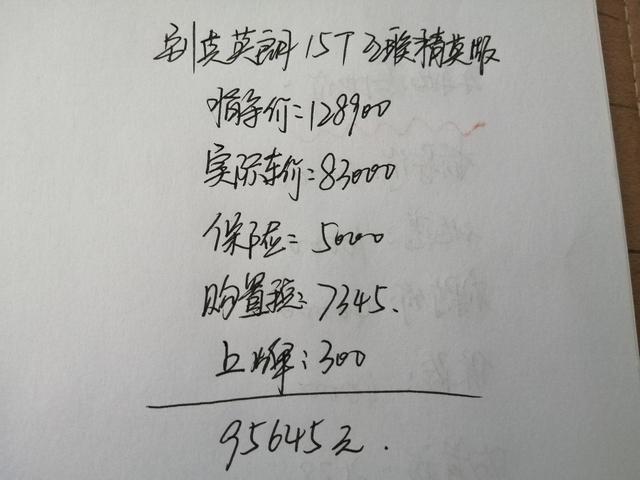 别克英朗15T 互联精英版
指导价=128900
实际车价=83000
保险=5000
购置税:7345.
上牌:300
95645元.